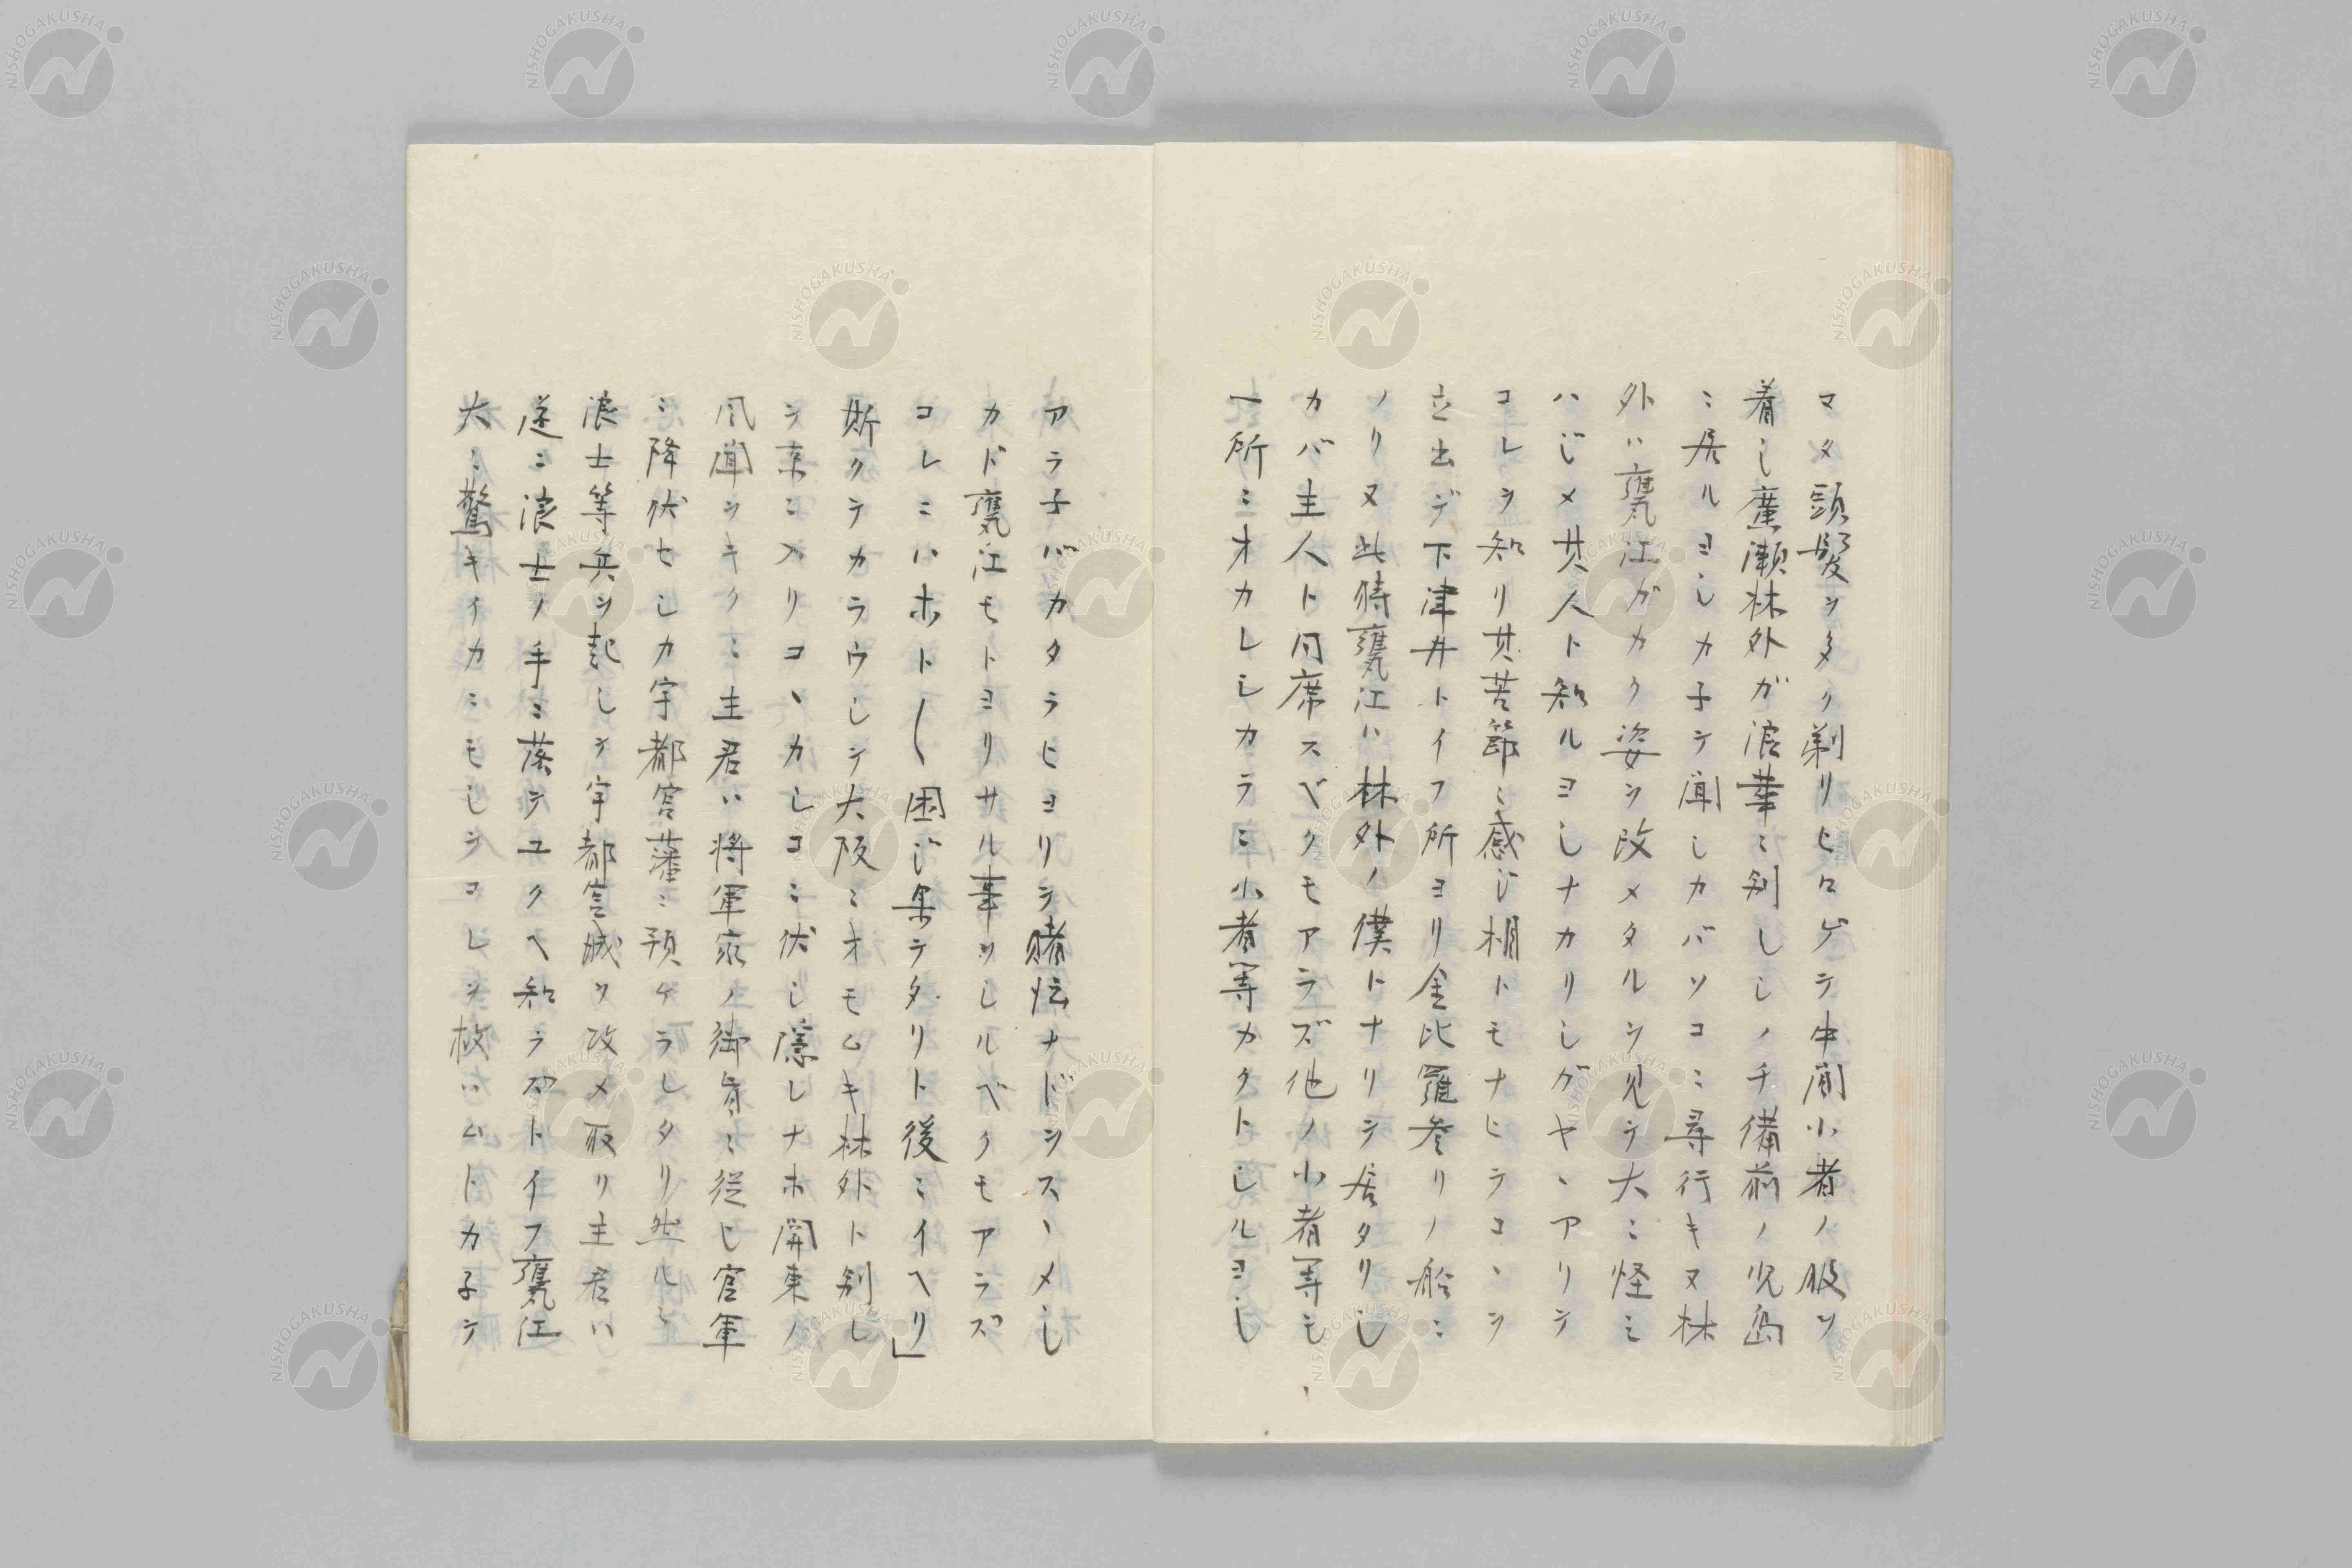 マタ頭髪ヲ多ク剃リヒロゲテ中間小者ノ服ヲ
着シ廉瀬林外ガ浪華ニ別レシノチ備前ノ児島
ニ居ルヨシカ子テ聞シカバソコニ尋行キヌ林
外ハ甕江ガカク姿ヲ改メタルヲ見テ大ニ怪ミ
ハジメ其人ト知ルヨシナカリシガヤヽアリテ
コレヲ知リ其苦節ニ感ジ相トモナヒテコヽヲ
立出デ下津井トイフ所ヨリ金比羅参リノ船ニ
ノリヌ此時甕江ハ林外ノ僕トナリテ居タリシ
カバ主人ト同席スベクモアラズ他ノ小者等モ
一所ニオカレシカラニ小者等カクトシルヨシ
アラ子バカタラヒヨリテ賭なドヲスヽメシ
カド甕江モトヨリサル事ヲシルベクモアラズ
コレニハホト〳〵困ジ果テタリト後ニイヘリ」
斯クテカラウシテ大阪ニオモムキ林外ト別レ
テ京ニ入リコヽカシコニ伏シ隠レナホ関東ノ
風聞ヲキクニ主君ハ将軍家ノ御旨ニ従ヒ官軍
ニ降伏セシカ宇都宮藩ニ預ケラレタリ然ルニ
浪士等兵ヲ起シテ宇都宮城ヲ攻メ取リ主君ハ
遂ニ浪士ノ手ニ落テユクヘ知ラズトイフ甕江
大ニ驚キイカニモシテコレヲ救ハムトカ子テ